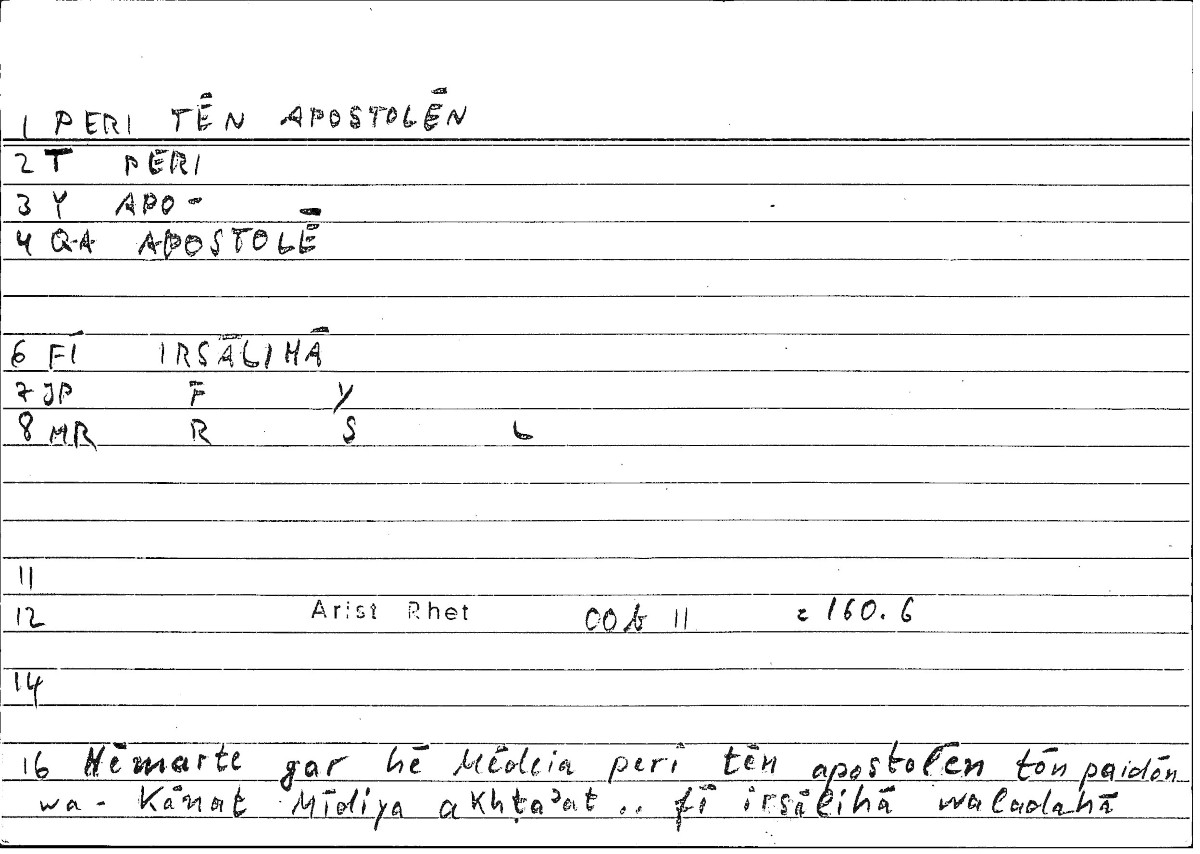 1 PERI TĒN APOSTOLĒN
2 T PERI
3 Y APO-
4 QA APOSTOLĒ
6 FĪ IRSĀLIHĀ
7 JP F Y
8 MR R S L
11
12 Arist Rhet 00b 11 = 160.6
14
16 Hēmarte gar hē Mēdeia peri tēn apostolēn tōn paidōn
wa-Kānat Mīdiya akhṭaʾat .. fī irsālihā waladahā